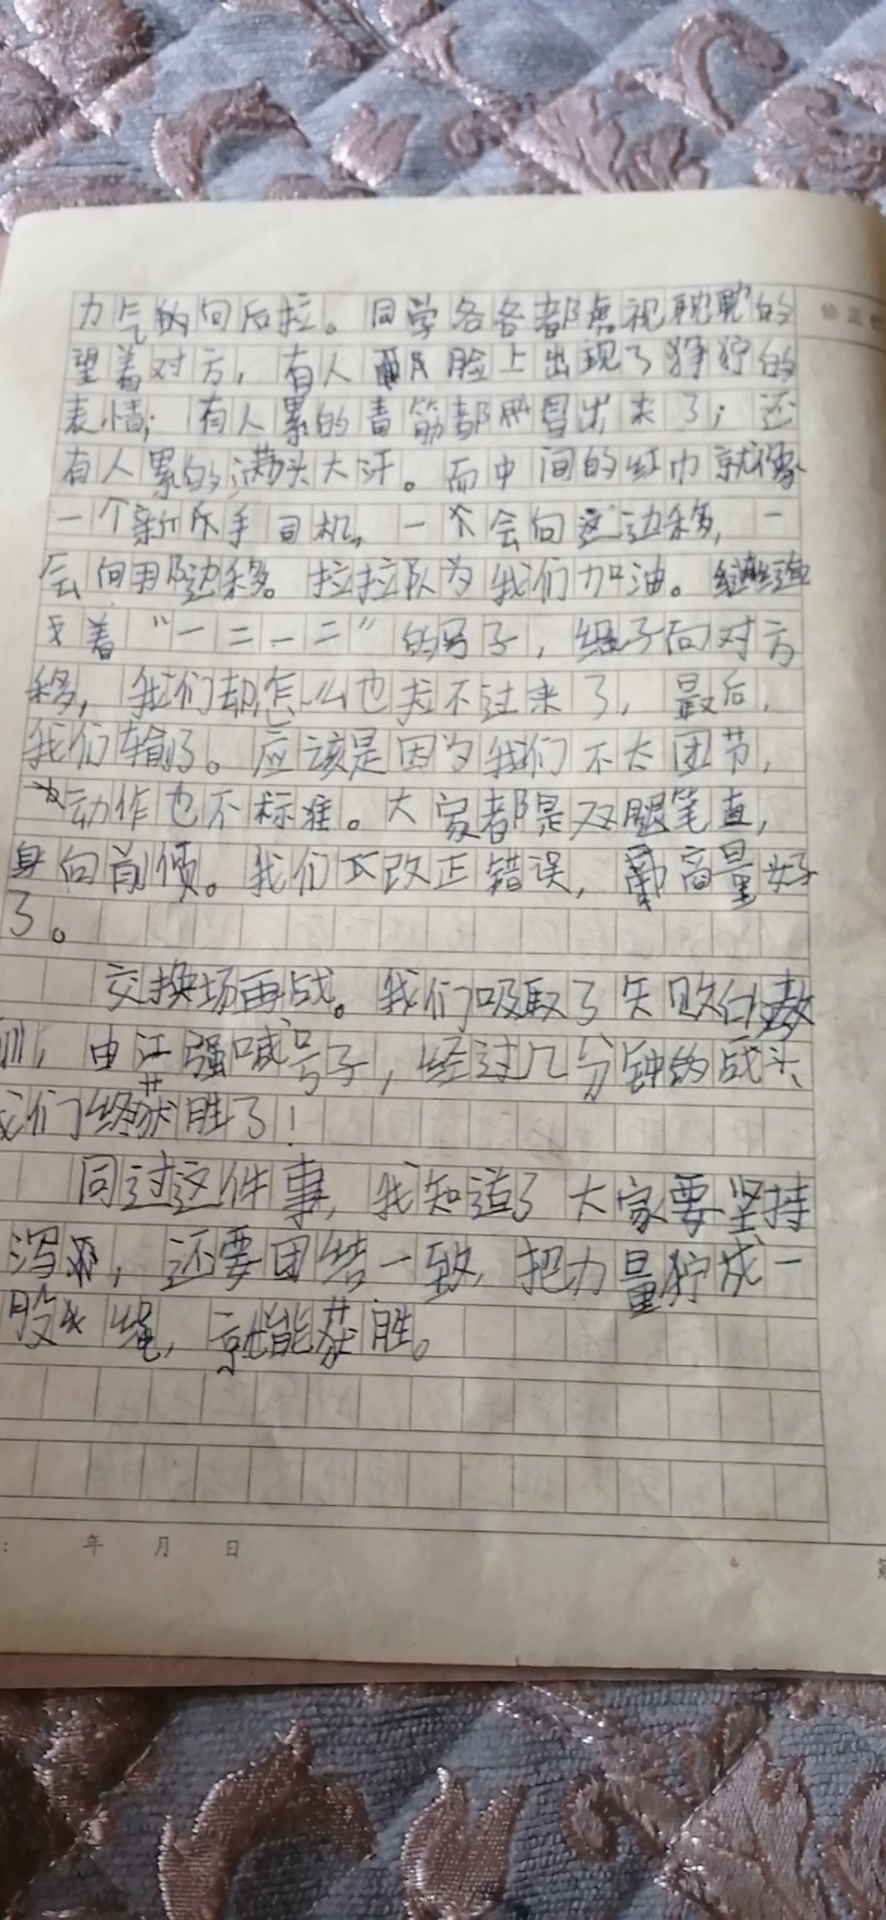 修正栏
力气的向后拉。同学各各都虎视眈眈的
望着对方,有人脸上出现了狰狞的
表情;有人累的青筋都冒出来了;还
有人累的满头大汗。而中间的红巾就像
一个新乐手司机,一不会向这边移,一
会向那边移。拉拉队为我们加油。
着“一二一二”的号子,绳子向对方
移,我们却怎么也拔不过来了,最后,
我们输了。应该是因为我们不太团节,
动作也不标准。大家都是双腿笔直,
身向前倾。我们改正错误,商量好
了。
交换场再战。我们吸取了失败的教
训,由江强喊号子,经过几分钟的战斗
我们终获胜了!
同过这件事,我知道了大家要坚持
,还要团结一致,把力量拧成一
股绳,就能获胜。
: 年 月 日
第